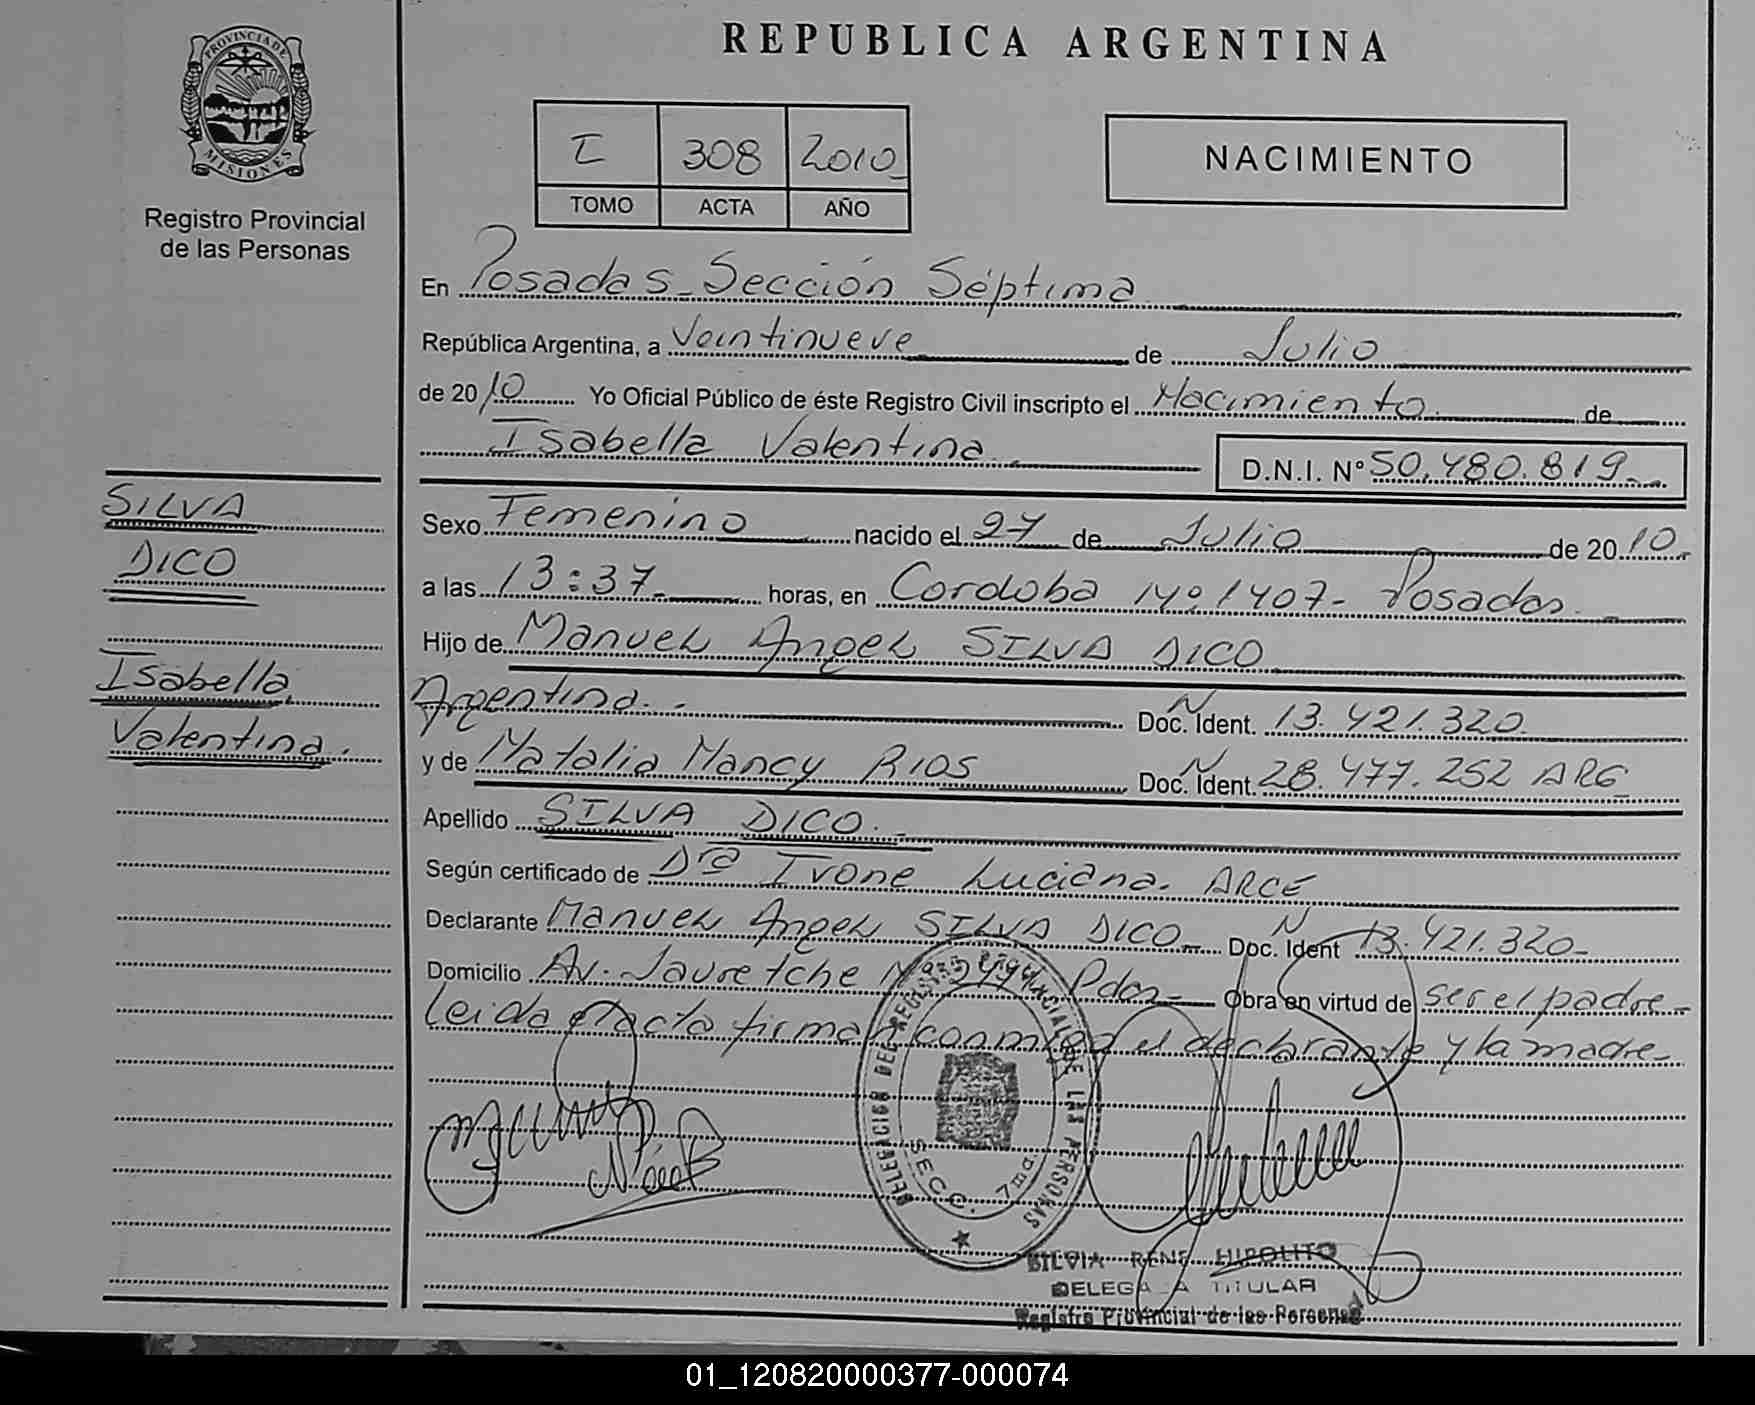 PROVINCIA DE
MISIONES
Registro Provincial
de las Personas
SILVA
DICO
Isabella
Valentina.
REPUBLICA ARGENTINA
I 308 2010
TOMO ACTA AÑO
NACIMIENTO
En Posadas_Sección Séptima
República Argentina, a Veintinueve de Julio
de 2010 Yo Oficial Público de éste Registro Civil inscripto el Nacimiento de
Isabella Valentina
D.N.I. Nº 50.480.819
Sexo Femenino nacido el 27 de Julio de 2010
a las 13:37 horas, en Cordoba Nº 1407- Posadas
Hijo de Manuel Angel SILVA DICO
Argentina. Doc. N Ident. 13.421.320
y de Natalia Nancy RIOS Doc. N Ident. 28.477.252 ARG
Apellido SILVA DICO.
Según certificado de Dra Ivone Luciana. ARCE
Declarante Manuel Angel SILVA DICO Doc. N Ident 13.421.320-
Domicilio Av. Jauretche Pdas- Obra en virtud de ser el padre-
Leida el acta firman conmigo el declarante y la madre-
DELEGACION DEL REGISTRO PROVINCIAL DE LAS PERSONAS
SECC. 7ma
SILVIA RENE HIPOLITO
DELEGADA TITULAR
Registro Provincial de las Personas
01_120820000377-000074